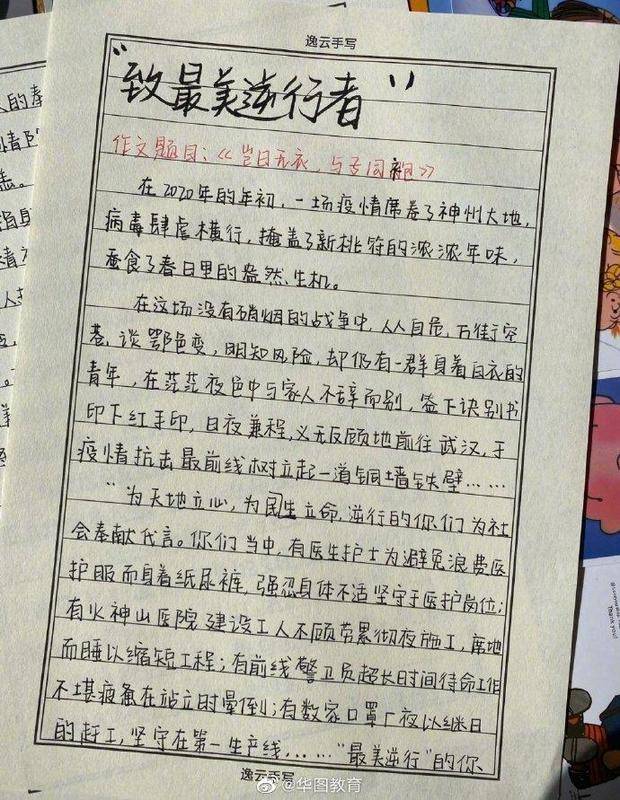 逸云手写
“致最美逆行者”
作文题目：《岂曰无衣，与子同袍》
在2020年的年初，一场疫情席卷了神州大地，
病毒肆虐横行，掩盖了新桃符的浓浓年味，
蚕食了春日里的盎然生机。
在这场没有硝烟的战争中，人人自危，万街空
巷，谈鄂色变，明知风险，却仍有一群身着白衣的
青年，在茫茫夜色中与家人不辞而别，签下诀别书
印下红手印，日夜兼程，义无反顾地前往武汉，于
疫情抗击最前线树立起一道铜墙铁壁……
“为天地立心，为民生立命，逆行的你们为社
会奉献代言。你们当中，有医生护士为避免浪费医
护服而身着纸尿裤，强忍身体不适坚守于医护岗位；
有火神山医院建设工人不顾劳累彻夜施工，席地
而睡以缩短工程；有前线警卫员超长时间待命工作
不堪疲惫在站立时晕倒；有数家口罩厂夜以继日
的赶工，坚守在第一生产线，……“最美逆行”的你
逸云手写
@华图教育
人的奉
Thank you!